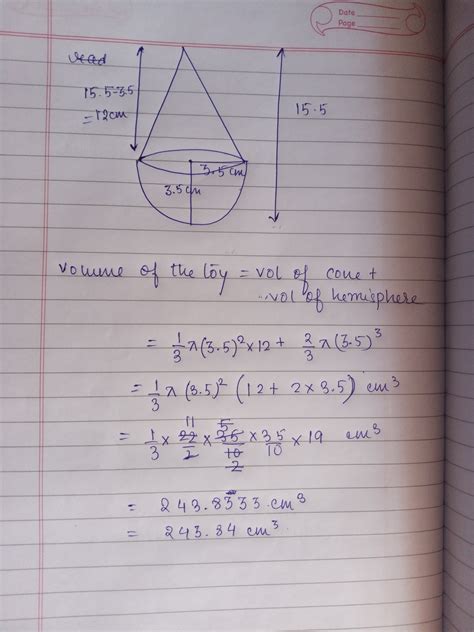 Date
Page
15.5-3.5
= 12cm
15.5
3.5 cm
3.5 cm
Volume of the toy = vol of cone +
vol of hemisphere
= 1/3 π(3.5)²×12 + 2/3 π(3.5)³
= 1/3 π (3.5)² (12 + 2×3.5) cm³
11 5
= 1/3 × 22/2 × 35/10 × 35/10 × 19 cm³
2
= 243.8333 cm³
= 243.84 cm³